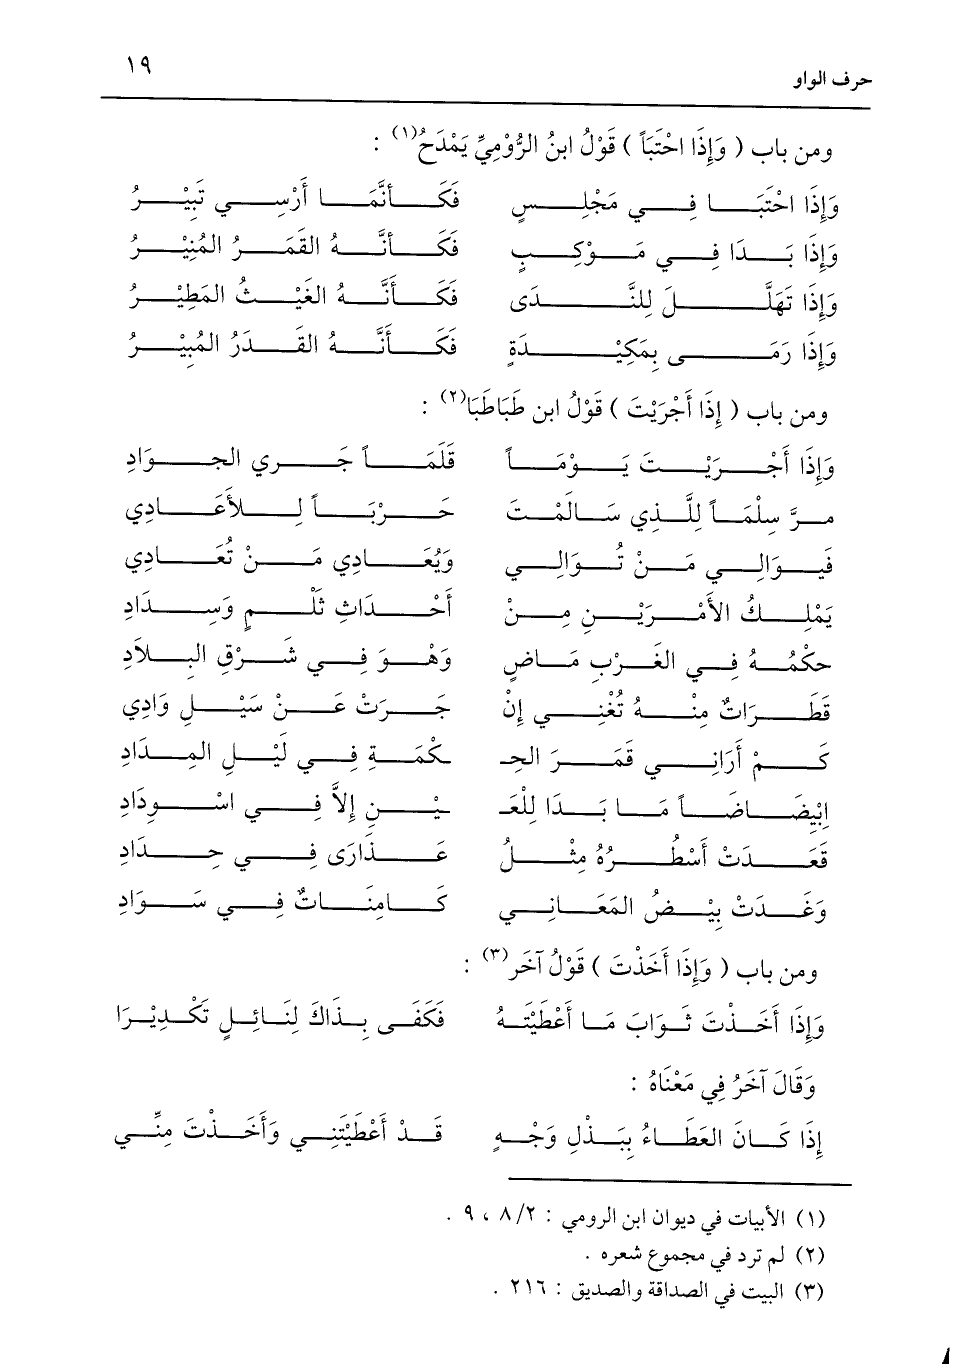 حرف الواو ١٩
ومن باب ( وَإِذَا احْتَبَأَ ) قَوْلُ ابنُ الرُّوْمِيِّ يَمْدَحُ(١) :
وَإِذَا احْتَبَا فِي مَجْلِسٍ فَكَأَنَّمَا أَرْسِي ثَبِيْرُ
وَإِذَا بَدَا فِي مَوْكِبٍ فَكَأَنَّهُ القَمَرُ المُنِيْرُ
وَإِذَا تَهَلَّلَ لِلنَّدَى فَكَأَنَّهُ الغَيْثُ المَطِيْرُ
وَإِذَا رَمَى بِمَكِيْدَةٍ فَكَأَنَّهُ القَدَرُ المُبِيْرُ
ومن باب ( إِذَا أَجْرَيْتَ ) قَوْلُ ابن طَبَاطَبَا(٢) :
وَإِذَا أَجْرَيْتَ يَوْمَاً قَلَمَاً جَري الجوَادِ
مرَّ سِلْمَاً لِلَّذِي سَالَمْتَ حَرْبَاً لِلأَعَادِي
فَيوَالِي مَنْ تُوَالِي وَيُعَادِي مَنْ تُعَادِي
يَمْلِكُ الأَمْرَيْنِ مِنْ أَحْدَاثِ ثَلْمٍ وَسِدَادِ
حكْمُهُ فِي الغَرْبِ مَاضٍ وَهْوَ فِي شَرْقِ البِلاَدِ
قَطَرَاتٌ مِنْهُ تُغْنِي إِنْ جَرَتْ عَنْ سَيْلِ وَادِي
كَمْ أَرَانِي قَمَرَ الحِـ ـكْمَةِ فِي لَيْلِ المِدَادِ
ابْيِضَاضَاً مَا بَدَا لِلْعَـ ـيْنِ إِلاَّ فِي اسْودَادِ
قَعَدَتْ أَسْطُرُهُ مِثْلُ عَذَارَى فِي حِدَادِ
وَغَدَتْ بِيْضُ المَعَانِي كَامِنَاتٌ فِي سَوَادِ
ومن باب ( وَإِذَا أَخَذْتَ ) قَوْلُ آخَر(٣) :
وَإِذَا أَخَذْتَ ثَوَابَ مَا أَعْطَيْتَهُ فَكَفَى بِذَاكَ لِنَائِلٍ تَكْدِيْرَا
وَقَالَ آخَرُ فِي مَعْنَاهُ :
إِذَا كَانَ العَطَاءُ بِبَذْلِ وَجْهٍ قَدْ أَعْطَيْتَنِي وَأَخَذْتَ مِنِّي
(١) الأبيات في ديوان ابن الرومي : ٨/٢ ، ٩ .
(٢) لم ترد في مجموع شعره .
(٣) البيت في الصداقة والصديق : ٢١٦ .